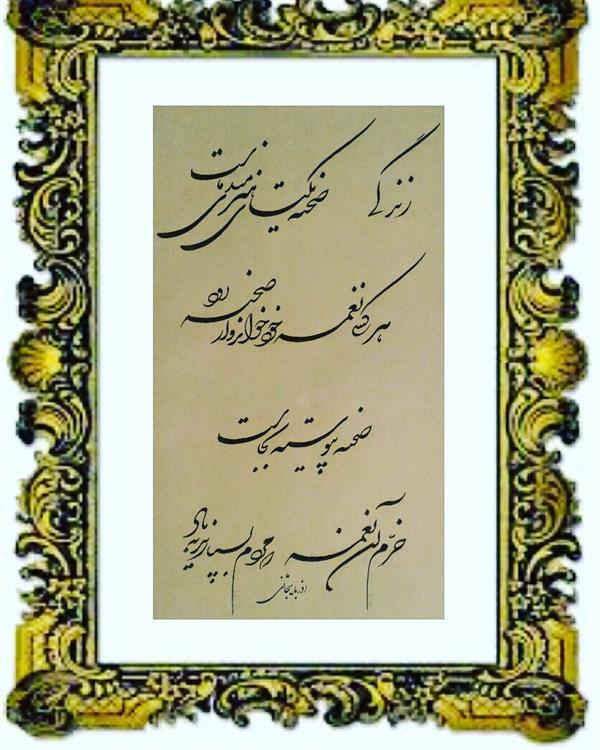 زندگی صحنه یکتای هنرمندی ماست
هر کسی نغمه خود خواند و از صحنه رود
صحنه پیوسته بجاست
خرّم آن نغمه که مردم بسپارند به یاد
اذربایجانی